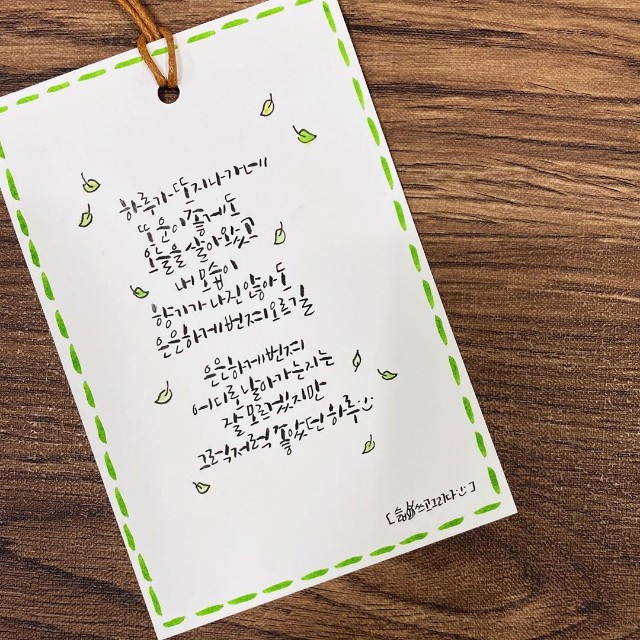 하루가 또 지나가네
또 운이 좋게도
오늘을 살아왔고
내 모습이
향기가 나진 않아도
은은하게 번져오르길
은은하게 번져
어디로 날아가는지는
잘 모르겠지만
그럭저럭 좋았던 하루
쓰고그리다